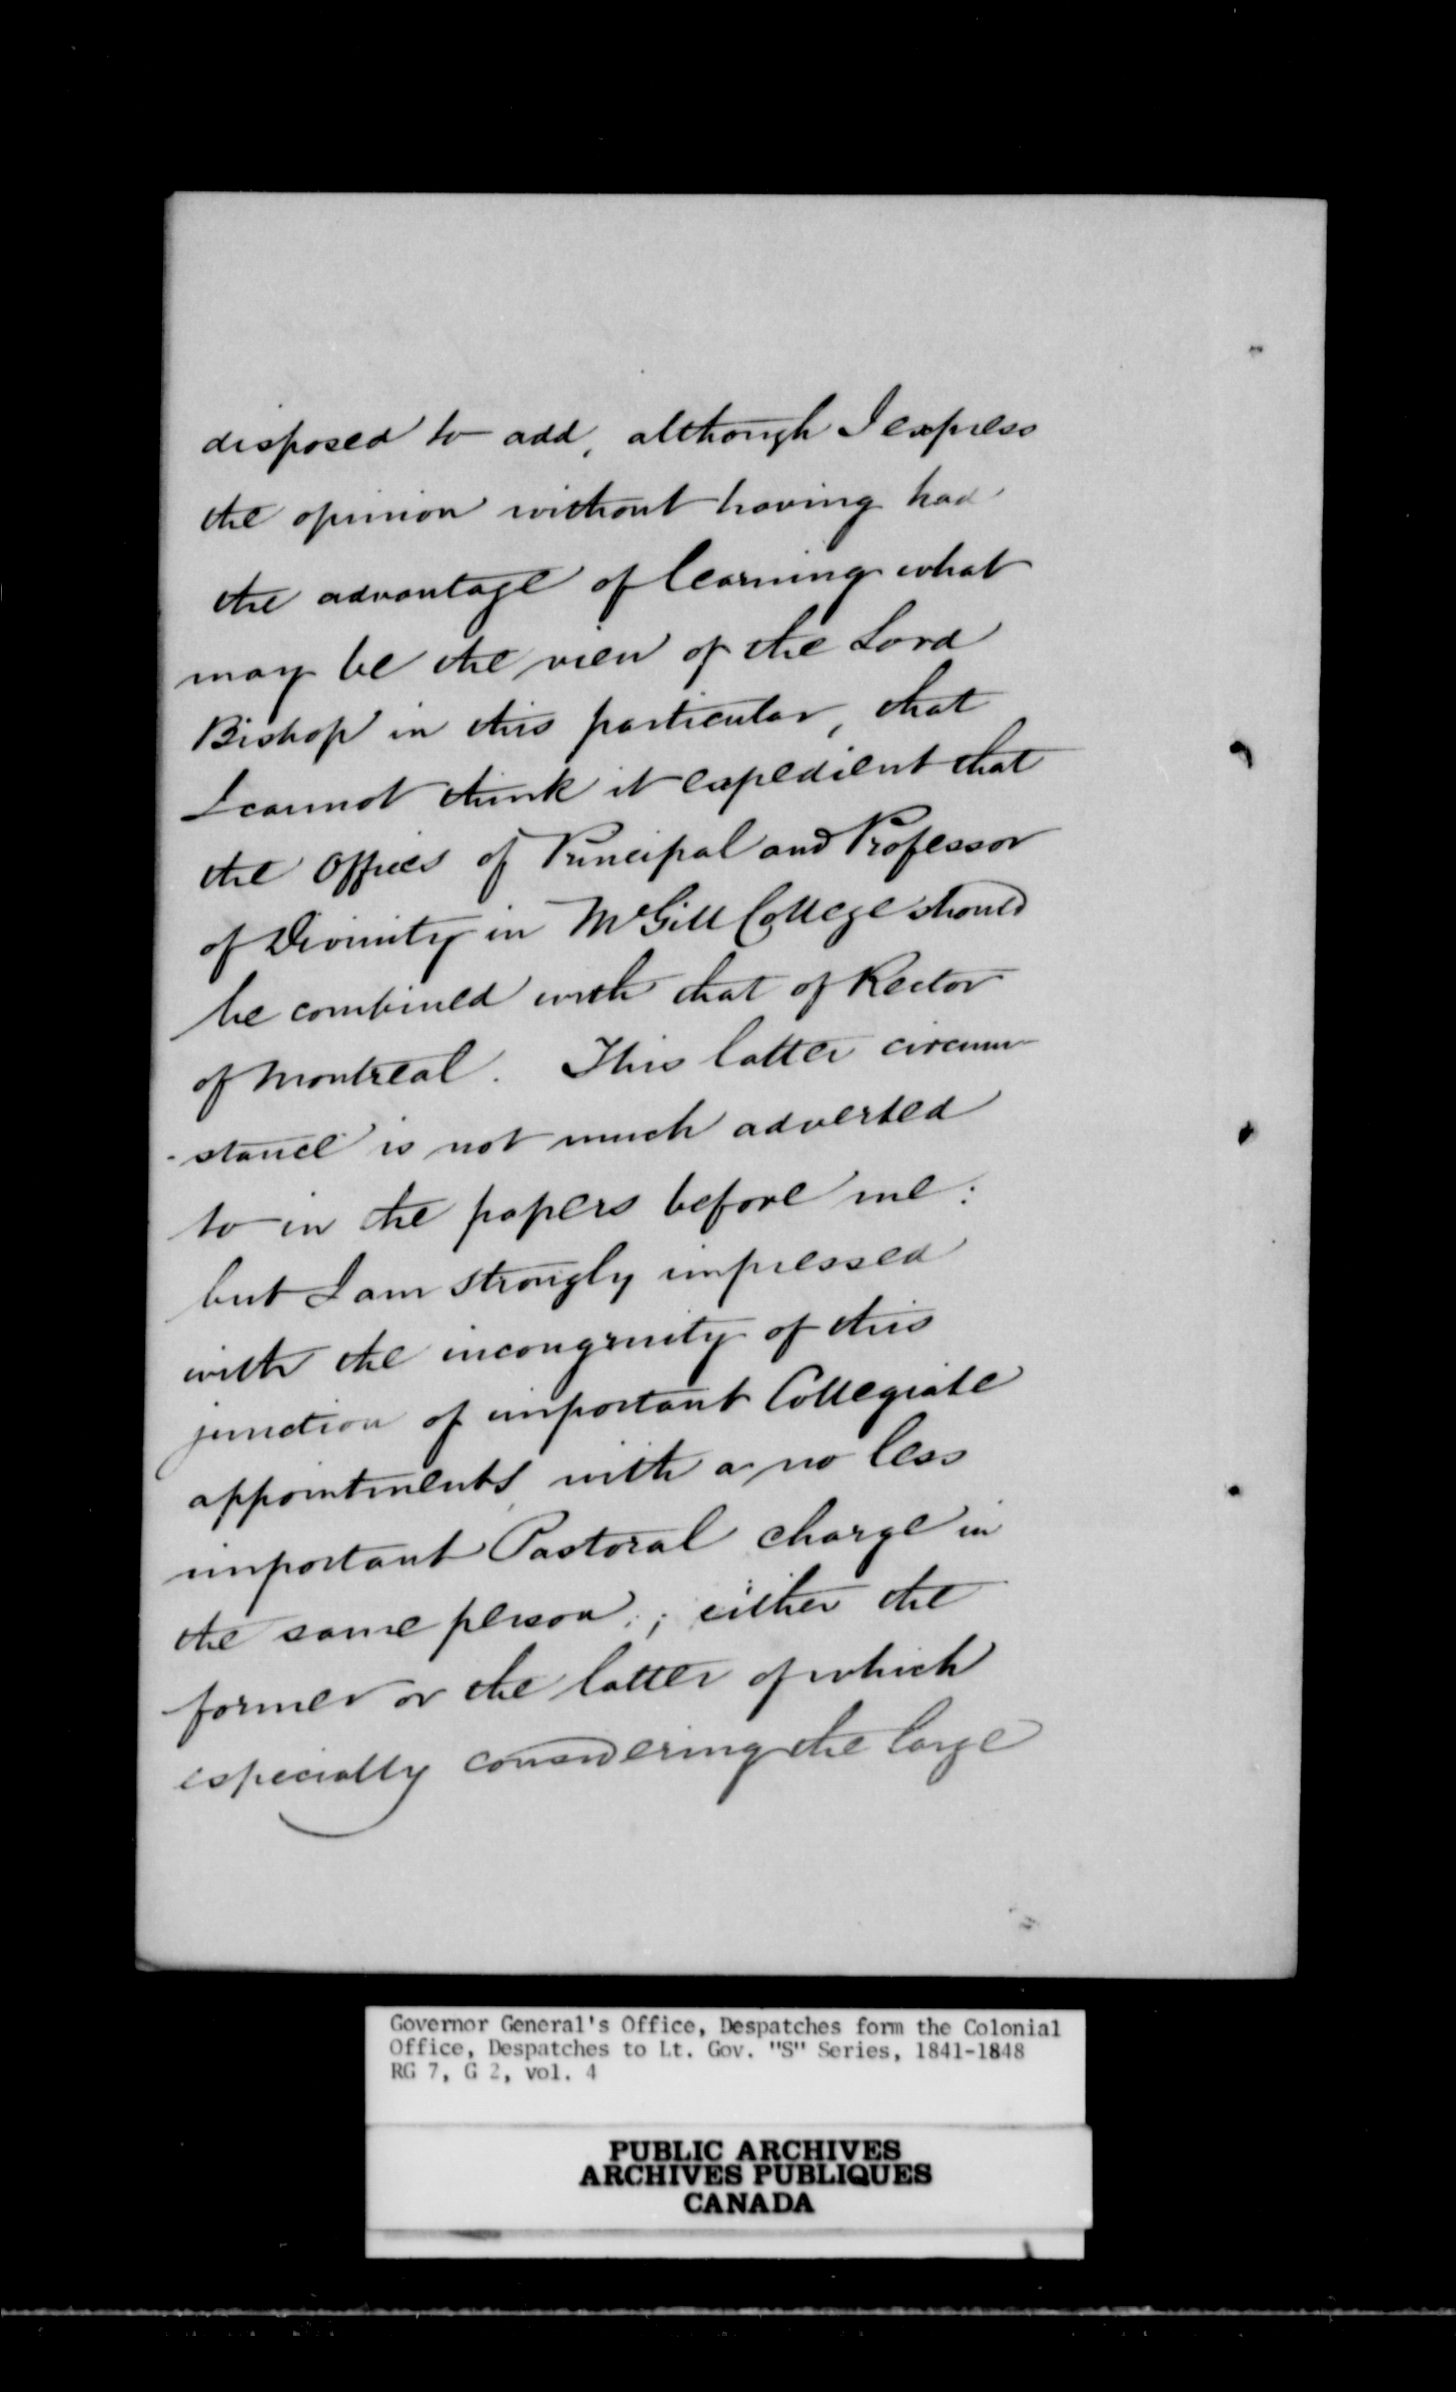 disposed to add, although I express
the opinion without having had
the advantage of learning what
may be the view of the Lord
Bishop in this particular, that
I cannot think it expedient that
the Offices of Principal and Professor
of Divinity in McGill College should
be combined with that of Rector
of Montreal. This latter circum-
-stance is not much adverted
to in the papers before me:
but I am strongly impressed
with the incongruity of this
junction of important Collegiate
appointments with a no less
important Pastoral charge in
the same person; either the
former or the latter of which
especially considering the large
Governor General's Office, Despatches form the Colonial
Office, Despatches to Lt. Gov. "S" Series, 1841-1848
RG 7, G 2, vol. 4
PUBLIC ARCHIVES
ARCHIVES PUBLIQUES
CANADA